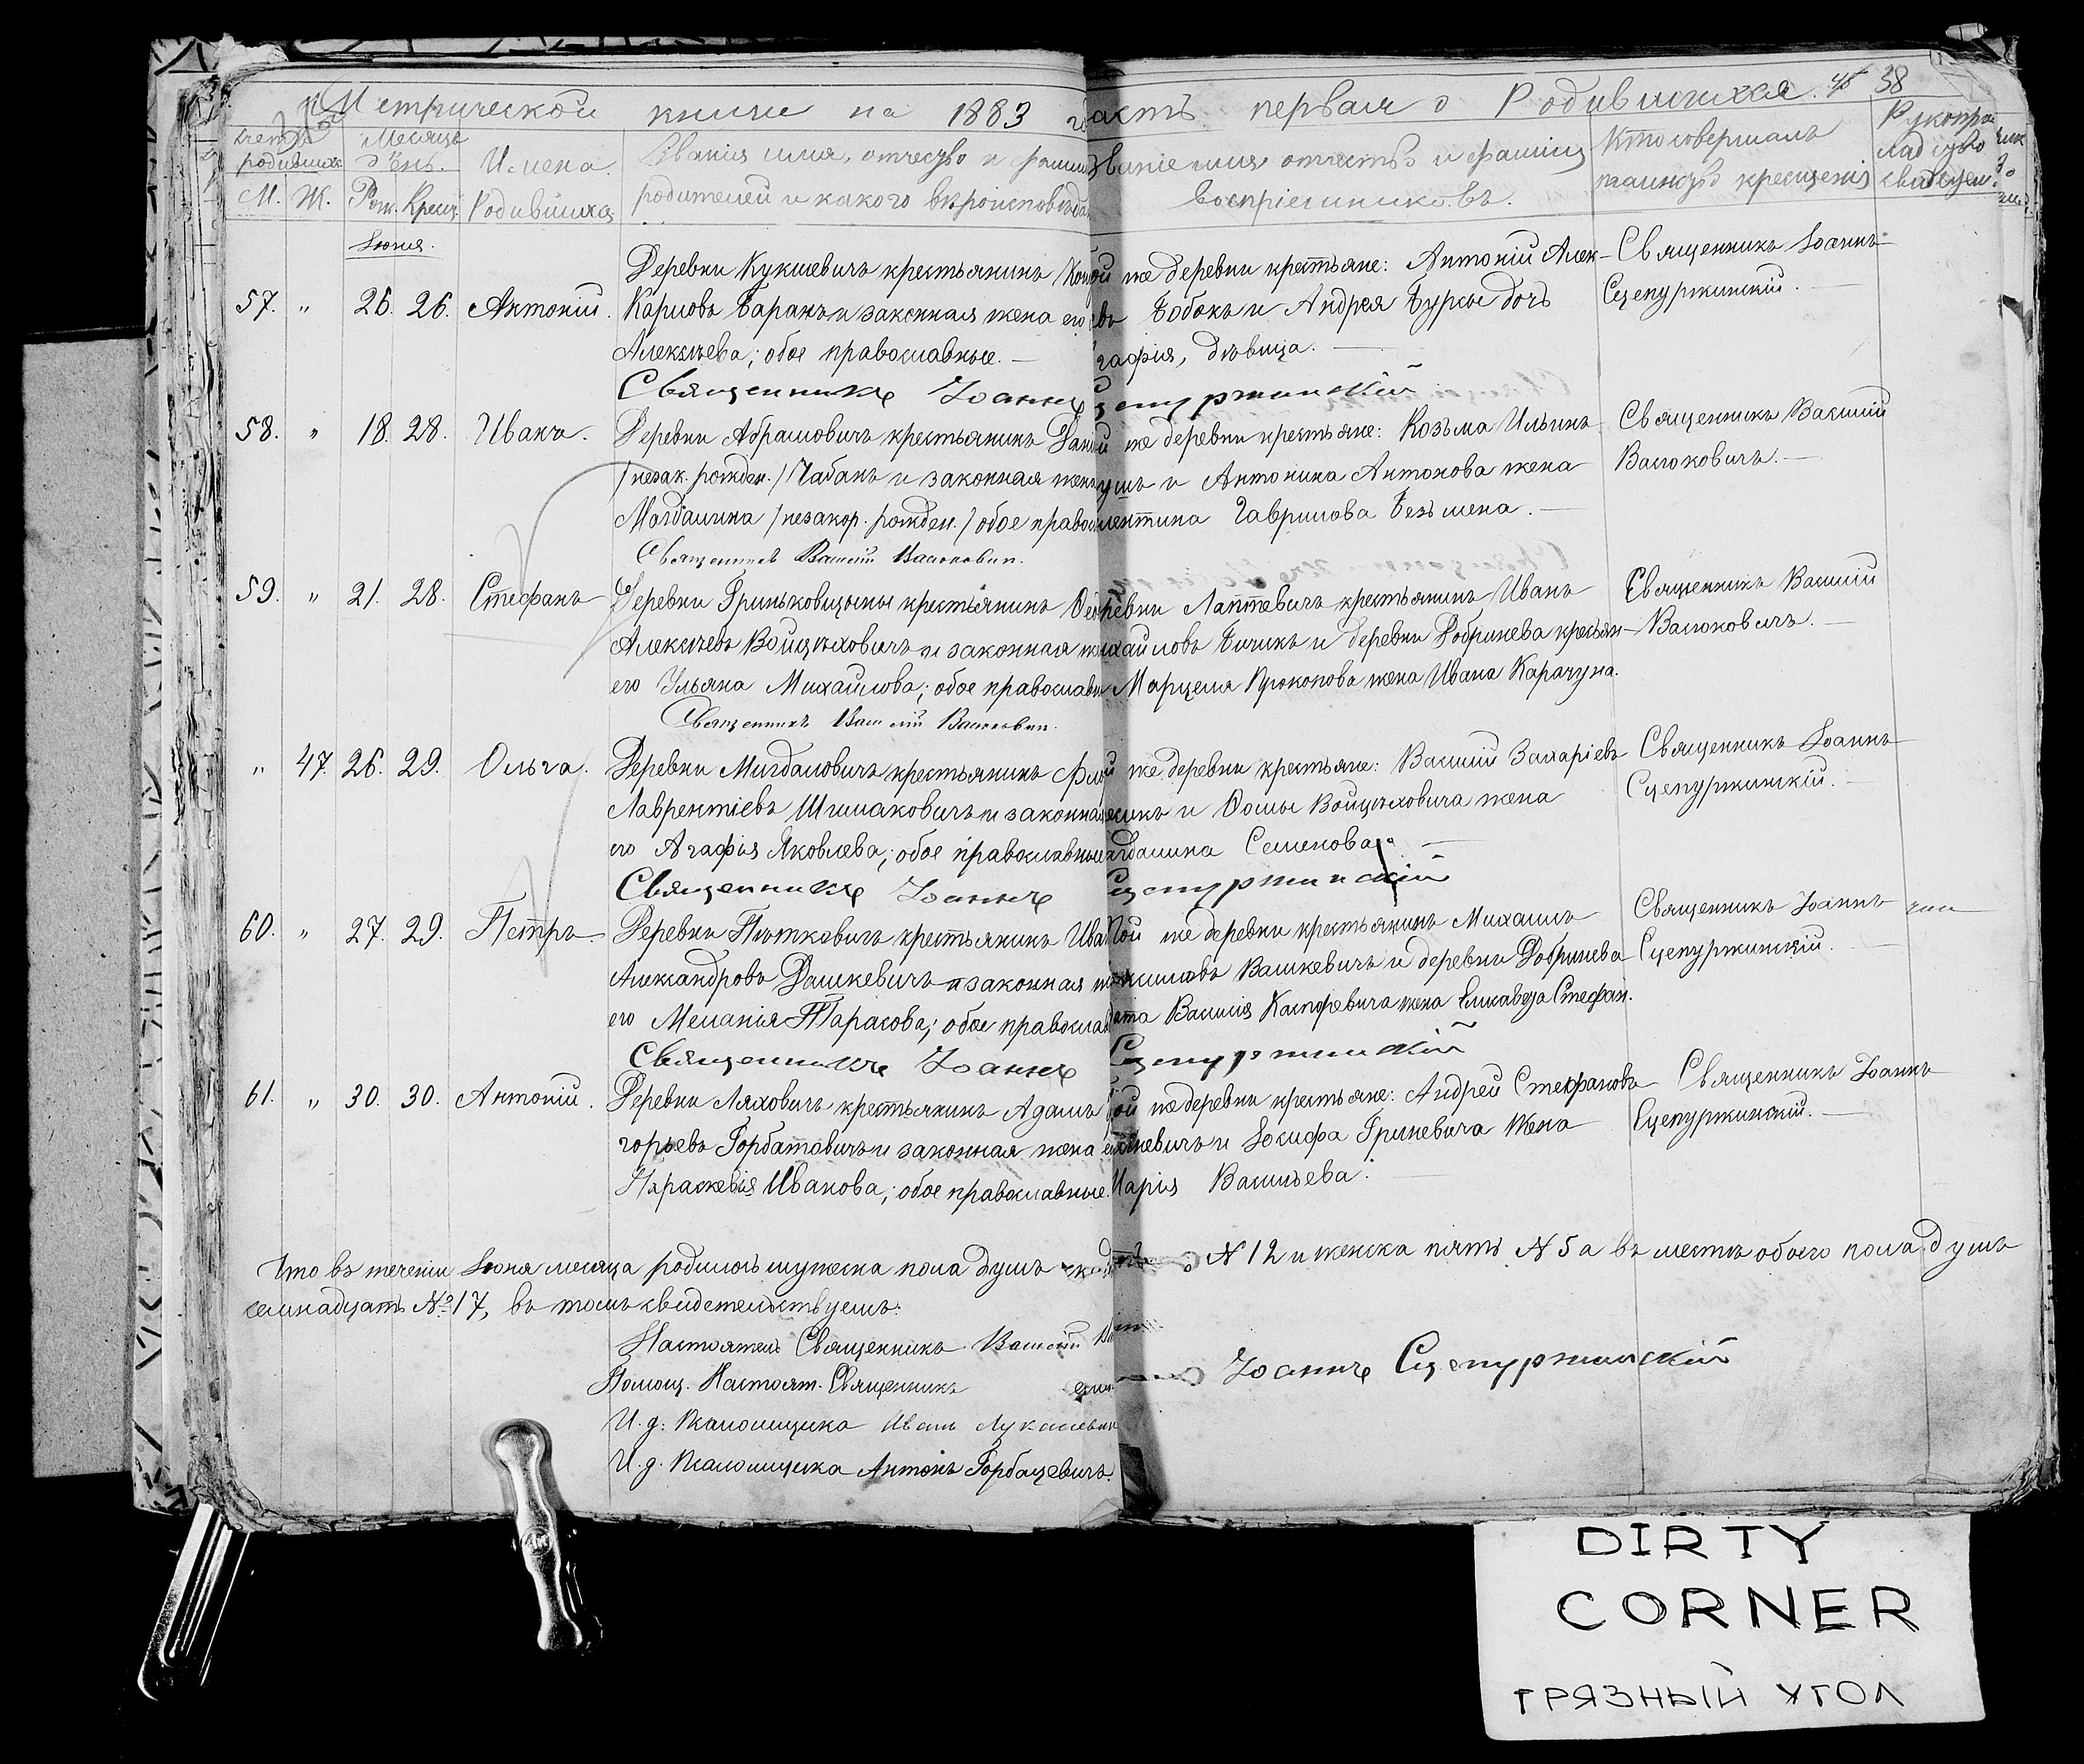 Метрической книги на 1883 го
часть первая о Родившихся. 38
Счетъ родившихся
М. Ж.
Месяцъ и день.
Рож. Крещ.
Имена Родившихся
Званія имя, отчество и фамил
родителей и какого вѣроисповѣда
Званіе имя отчество и фамилія
воспріемниковъ.
Кто совершалъ
таинство крещенія
Рукопри
кладство
свидетел.
Іюня.
57. " 26. 26. Антоній.
Деревни Кукшевичъ крестьянинъ
Карповъ Баранъ и законная жена его
Алексѣева; обое православные.
же деревни крестьяне: Антоній Алек-
Бобокъ и Андрея Бурсы дочь
гафія, дѣвица.
Священникъ Іоаннъ
Сцепуржинскій.
Священникъ Іоаннъ Сцепуржинскій
58. " 18. 28. Иванъ.
Деревни Абрамовичъ крестьянинъ
/незак. рожден./ Чабанъ и законная жена
Магдалина /незакон. рожден./ обое правосл
же деревни крестьяне: Козьма Ильинъ
и Антонина Антонова жена
Гаврилова Безъмена.
Священникъ Василій
Валюковичъ.
Священникъ Василій Валюкович.
59. " 21. 28. Стефанъ
Деревни Гриньковщизны крестьянинъ
Алексѣевъ Войцѣховичъ и законная ж
его Ульяна Михайлова; обое православн
Лаптевичъ крестьянинъ Иванъ
хайловъ Бичикъ и деревни Добринева крестьян-
Марцеля Прокопова жена Ивана Карачуна.
Священникъ Василій
Валюковичъ.
Священникъ Василій Валюкович.
" 47. 26. 29. Ольга.
Деревни Мигдаловичъ крестьянинъ
Лаврентіевъ Шимаковичъ и законная
его Агафія Яковлева; обое православные
же деревни крестьяне: Василій Захаріевъ
и Ѳомы Войцѣховича жена
гдалина Семенова.
Священникъ Іоаннъ
Сцепуржинскій.
Священникъ Іоаннъ Сцепуржинскій
60. " 27. 29. Петръ.
Деревни Пѣтковичъ крестьянинъ Ива
Александровъ Дашкевичъ и законная
его Меланія Тарасова; обое правосла
той же деревни крестьянинъ Михаилъ
Вашкевичъ и деревни Добринева
Василія Каспоревича жена Елисавета Стефан.
Священникъ Іоаннъ
Сцепуржинскій.
Священникъ Іоаннъ Сцепуржинскій
61. " 30. 30. Антоній.
Деревни Ляховичъ крестьянинъ Адамъ
горьевъ Горбатовичъ и законная жена
Параскевія Иванова; обое православные.
той же деревни крестьяне: Андрей Стефановъ
невичъ и Іосифа Гриневича жена
Марія Васильева.
Священникъ Іоаннъ
Сцепуржинскій.
Что въ теченіи Іюня месяца родилось мужеска пола душъ № 12 и женска пять № 5 а въ месте обоего пола душъ
семнадцать № 17, въ томъ свидетельствуемъ:
Настоятель Священникъ Василій
Помощ. Настоят. Священникъ Іоаннъ Сцепуржинскій
И.д. Псаломщика Иванъ Лукашевич
И.д. Псаломщика Антонъ Горбацевичъ.
DIRTY
CORNER
ГРЯЗНЫЙ УГОЛ